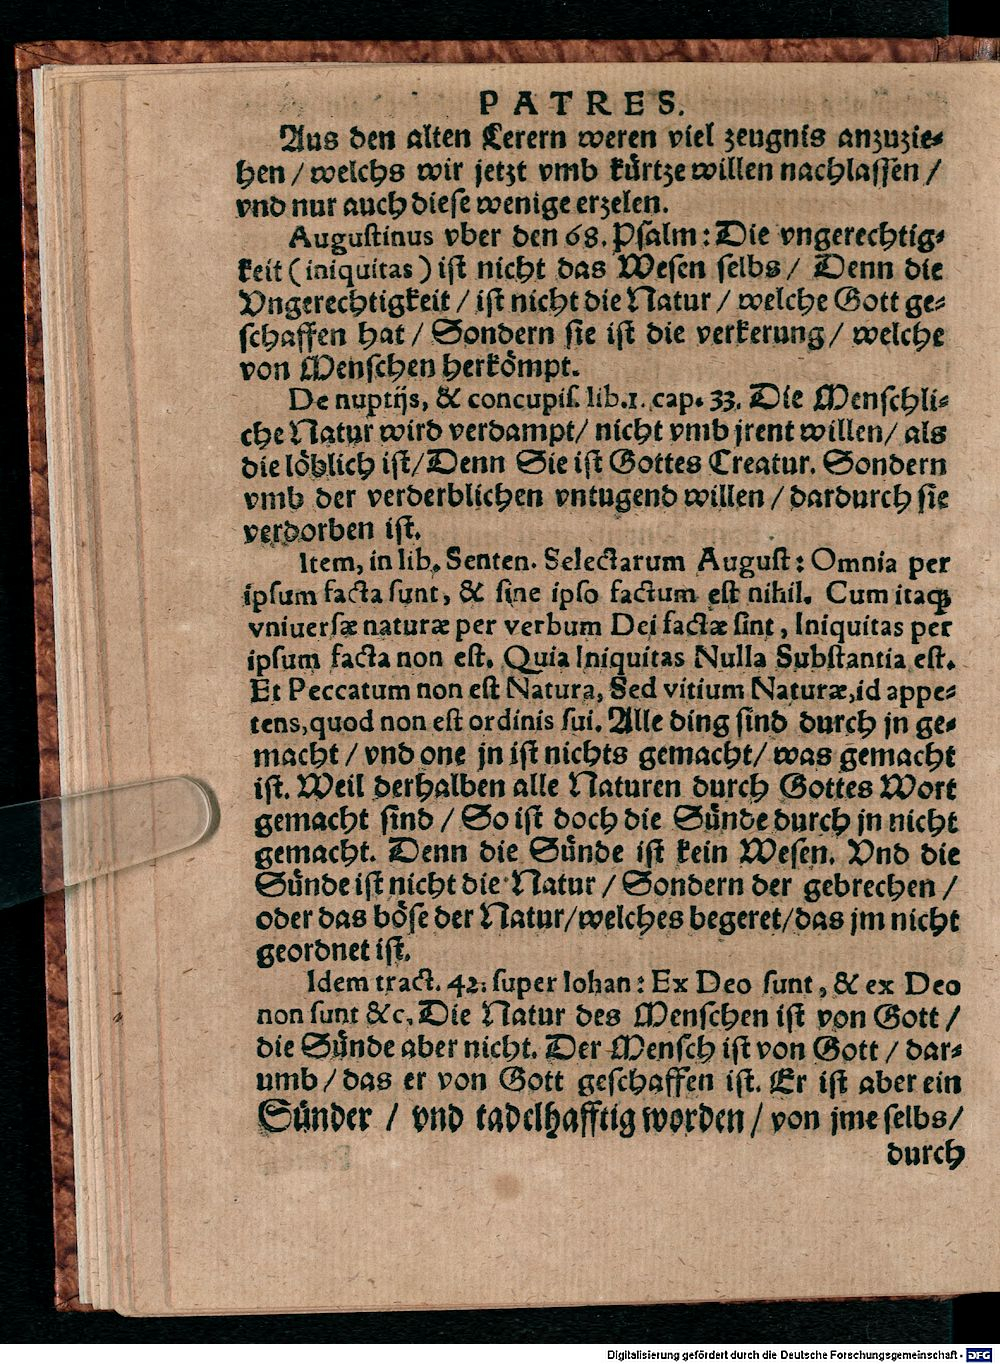 PATRES.
Aus den alten Lerern weren viel zeugnis anzuzie-
hen / welchs wir jetzt vmb kürtze willen nachlassen /
vnd nur auch diese wenige erzelen.
Augustinus vber den 68. Psalm: Die vngerechtig-
keit (iniquitas) ist nicht das Wesen selbs / Denn die
Vngerechtigkeit / ist nicht die Natur / welche Gott ge-
schaffen hat / Sondern sie ist die verkerung / welche
von Menschen herkömpt.
De nuptijs, & concupis. lib. 1. cap. 33. Die Menschli-
che Natur wird verdampt / nicht vmb jrent willen / als
die löblich ist / Denn Sie ist Gottes Creatur. Sondern
vmb der verderblichen vntugend willen / dardurch sie
verdorben ist.
Item, in lib. Senten. Selectarum August: Omnia per
ipsum facta sunt, & sine ipso factum est nihil. Cum itaq;
vniuersæ naturæ per verbum Dei factæ sint, Iniquitas per
ipsum facta non est. Quia Iniquitas Nulla Substantia est.
Et Peccatum non est Natura, Sed vitium Naturæ, id appe-
tens, quod non est ordinis sui. Alle ding sind durch jn ge-
macht / vnd one jn ist nichts gemacht / was gemacht
ist. Weil derhalben alle Naturen durch Gottes Wort
gemacht sind / So ist doch die Sünde durch jn nicht
gemacht. Denn die Sünde ist kein Wesen. Vnd die
Sünde ist nicht die Natur / Sondern der gebrechen /
oder das böse der Natur / welches begeret / das jm nicht
geordnet ist.
Idem tract. 42. super Iohan: Ex Deo sunt, & ex Deo
non sunt &c. Die Natur des Menschen ist von Gott /
die Sünde aber nicht. Der Mensch ist von Gott / dar-
umb / das er von Gott geschaffen ist. Er ist aber ein
Sünder / vnd tadelhafftig worden / von jme selbs /
durch
Digitalisierung gefördert durch die Deutsche Forschungsgemeinschaft - DFG